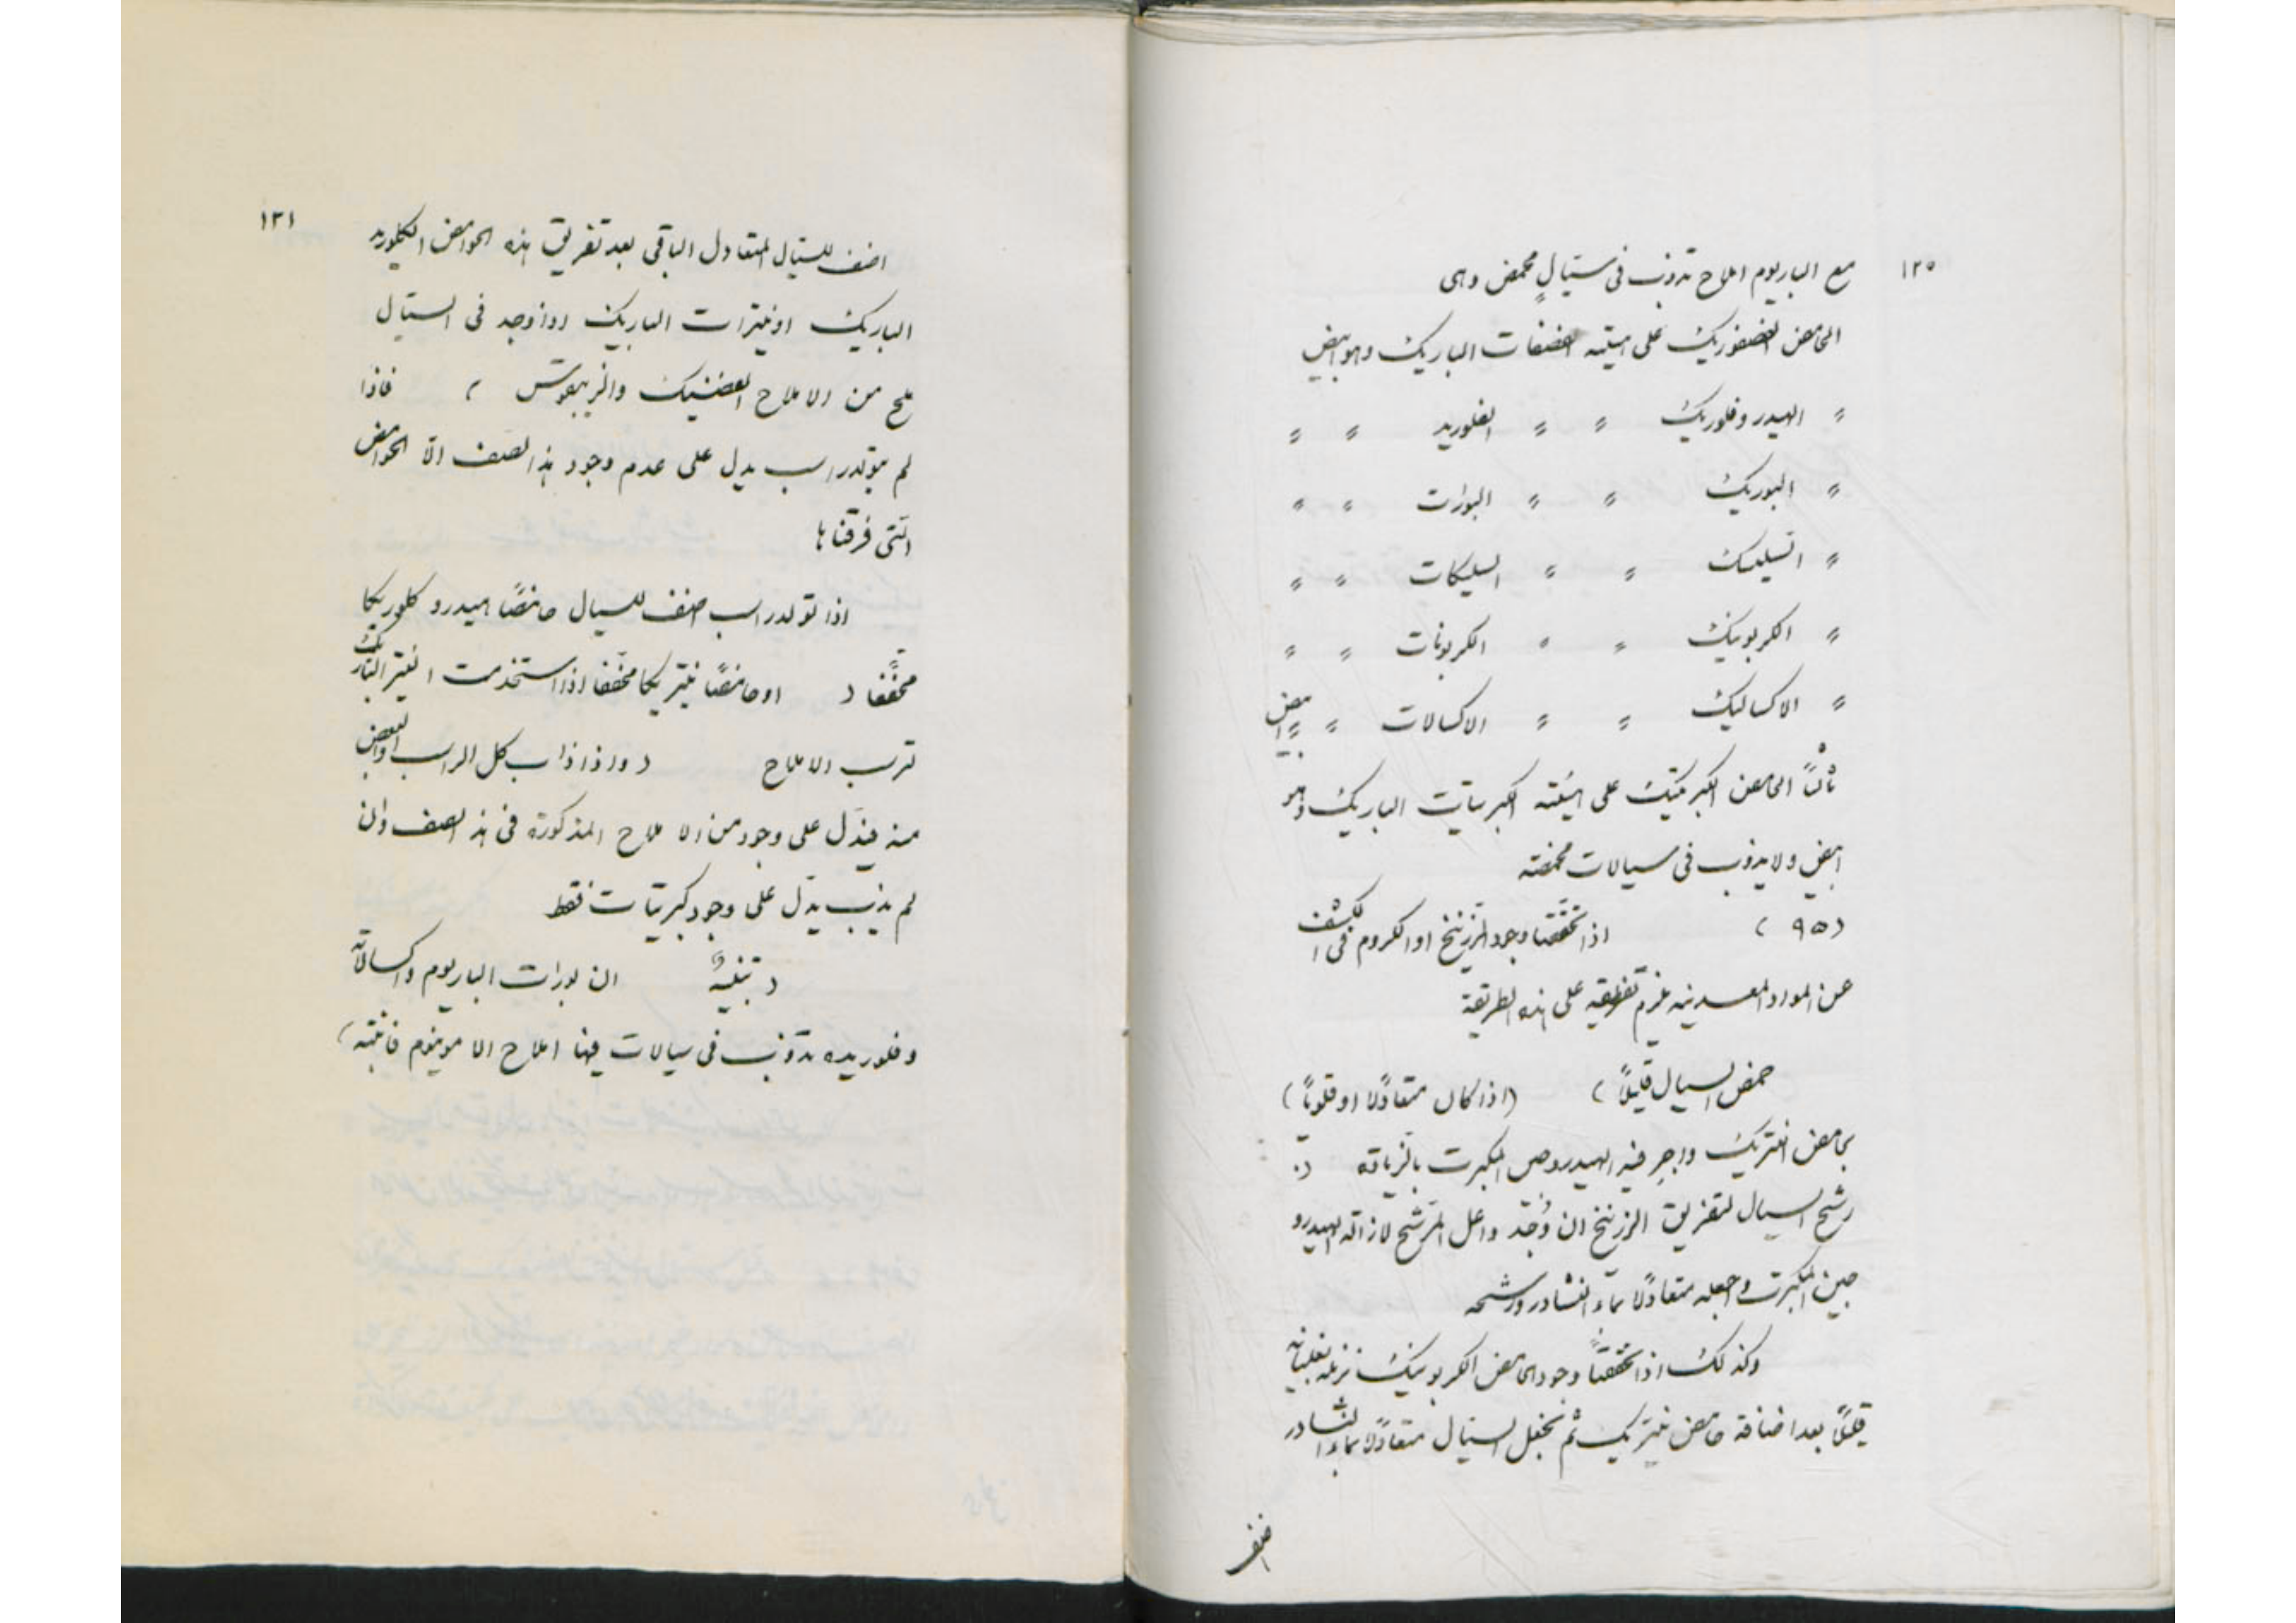 ١٢٠
مع الباريوم املاح تذوب فى سيّالٍ محمض وهى
الحامض الفصفوريك على هيئة فصفات الباريك وهو ابيض
〃 الهيدروفلوريك 〃 〃 الفلوريد 〃 〃
〃 البوريك 〃 〃 البورات 〃 〃
〃 السيليك 〃 〃 السليكات 〃 〃
〃 الكربونيك 〃 〃 الكربونات 〃 〃
〃 الاكساليك 〃 〃 الاكسالات 〃 〃 ابيض
ثانياً الحامض الكبرتيك على هيئته كبرتيات الباريك وهو
ابيض ولا يذوب فى سيالات محمضة
(٩٥) اذا تحققنا وجود الزرنيخ او الكروم فى الكشف
عن المواد المعدنيه يلزم تفريقه على هذه الطريقة
حمض السيال قليلاً) (اذا كان متعادلاً او قلوياً)
بحامض النتريك واجرِ فيه الهيدروجين المكبرت بالزيادة (.
رشح السيال لتفريق الزرنيخ ان وُجد واغل المرشح لازاله الهيدرو
جين المكبرت واجعله متعادلاً بماء النشادر ورشحه
وكذلك اذا تحققنا وجود الحامض الكربونيك نزيله بغليانه
قليلاً بعد اضافة حامض نيتريك ثم نجعل السيال متعادلاً بماء النشادر
اضف
١٢١
اضف للسيّال المتعادل الباقى بعد تفريق هذه الحوامض الكلوريد
الباريك او نيترات الباريك اذا وجد فى السيّال
ملح من الاملاح الفضيك والزيبقوس ) فاذا
لم يتولد راسب يدل على عدم وجود هذا الصنف الّا الحوامض
التى فرقناها
اذا تولد راسب اضف للسيال حامضًا هيدروكلوريكا
مخففًا ( او حامضًا نيتريكا مخففا اذا استخدمت النيترات الباريك
ترسب الاملاح ( واذا ذاب كل الراسب او البعض
منه فيدل على وجود من الاملاح المذكورة فى هذا الصنف وان
لم يذب يدل على وجود كبريتات فقط
( تنبيهٌ ان بورات الباريوم واكسالاته
وفلوريده تذوب فى سيالات فيها املاح الامونيوم فانتبه)